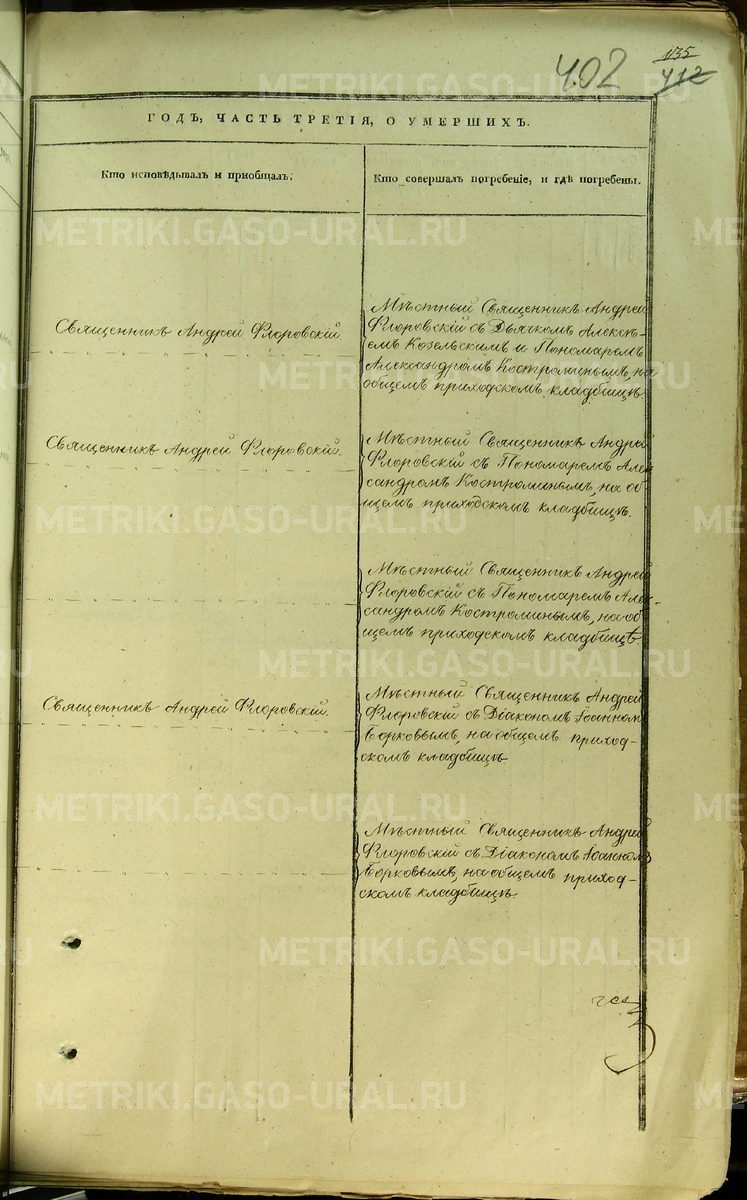 402
1135
412
ГОДЪ, ЧАСТЬ ТРЕТІЯ, О УМЕРШИХЪ.
Кто исповѣдывалъ и приобщалъ.
Кто совершалъ погребеніе, и гдѣ погребены.
Священникъ Андрей Флоровскій
Мѣстный Священникъ Андрей
Флоровскій съ Дьячкомъ Алексѣ-
емъ Козельскимъ и Пономаремъ
Александромъ Костроминымъ, на
общемъ приходскомъ кладбищѣ.
Священникъ Андрей Флоровскій.
Мѣстный Священникъ Андрей
Флоровскій съ Пономаремъ Алек
сандромъ Костроминымъ, на об
щемъ приходскомъ кладбищѣ.
Мѣстный Священникъ Андрей
Флоровскій съ Пономаремъ Алек-
сандромъ Костроминымъ, на об
щемъ приходскомъ кладбищѣ
Священникъ Андрей Флоровскій.
Мѣстный Священникъ Андрей
Флоровскій съ Діакономъ Іоанномъ
Борковымъ, на общемъ приход-
скомъ кладбищѣ.
Мѣстный Священникъ Андрей
Флоровскій съ Діакономъ Іоанномъ
Борковымъ, на общемъ приход-
скомъ кладбищѣ.
METRIKI.GASO-URAL.RU